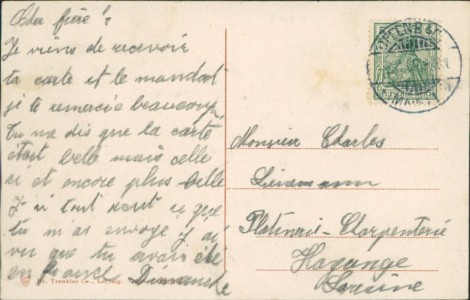 Cher frère!
Je viens de recevoir
ta carte et le mandat
je te remercie beaucoup
Tu me dis que la carte
était belle mais celle
ci et encore plus belle
tout ce que
tu m as envoyé j ai
vu que tu avais été
en france Dimanche
Monsieur Charles
Platinerie-Charpenterie
Hayange
Loraine
Dr. Trenkler Co., Leipzig.